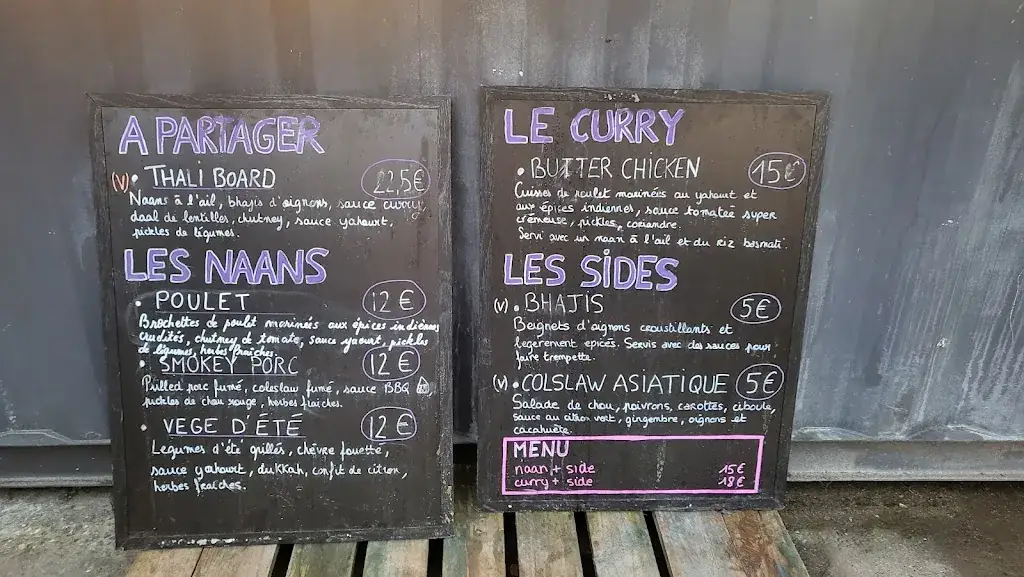 A PARTAGER
(V) • THALI BOARD 22,5€
Naans à l'ail, bhajis d'oignons, sauce curry,
daal de lentilles, chutney, sauce yahourt,
pickles de légumes.
LES NAANS
• POULET 12 €
Brochettes de poulet marinées aux épices indiennes
crudités, chutney de tomate, sauce yaourt, pickles
de légumes, herbes fraiches.
• SMOKEY PORC 12 €
Pulled porc fumé, coleslaw fumé, sauce BBQ
pickles de chou rouge, herbes fraiches.
• VEGE D'ÉTÉ 12 €
Legumes d'été grillés, chèvre fouetté,
sauce yahourt, dukkah, confit de citron,
herbes fraiches.
LE CURRY
• BUTTER CHICKEN 15€
Cuisses de poulet marinées au yahourt et
aux épices indiennes, sauce tomatée super
crémeuse, pickles, coriandre.
Servi avec un naan à l'ail et du riz basmati.
LES SIDES
(V) • BHAJIS 5€
Beignets d'oignons croustillants et
legerement epicés. Servis avec des sauces pour
faire trempette.
(V) • COLSLAW ASIATIQUE 5€
Salade de chou, poivrons, carottes, ciboule,
sauce au citron vert, gingembre, oignons et
cacahuète.
MENU
naan + side 15€
curry + side 18€